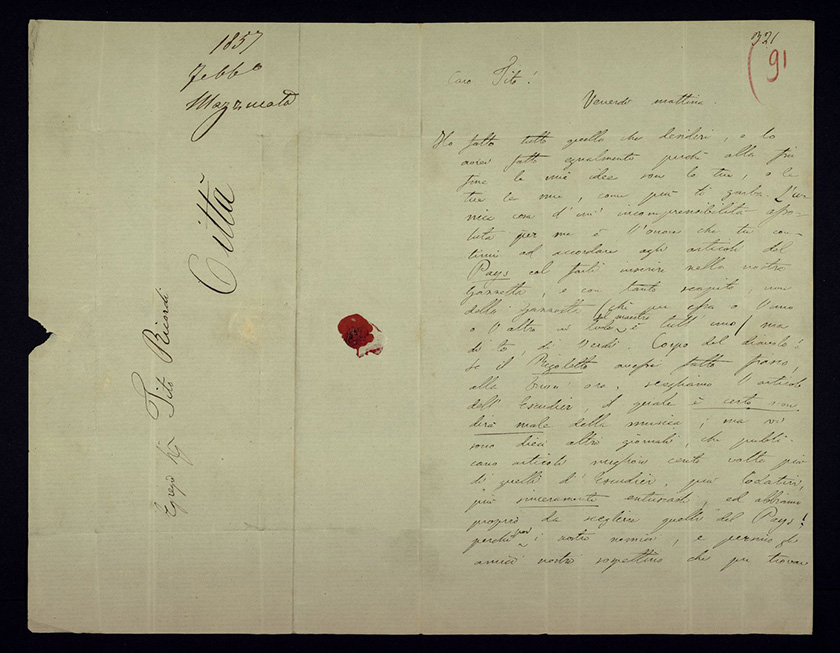 1857
Febb°
Mazzucato
Città
Egregio Sigr Tito Ricordi
321
91
Caro Tito!
Venerdì mattina.
Ho fatto tutto quello che desideri, e lo
avrei fatto egualmente perchè alla fin
fine le mie idee son le tue, o le
tue le mie, come più ti garba. L'u-
nica cosa d'un' incomprensibilità asso-
luta per me è l'onore che tu con-
tinui ad accordare agli articoli del
Pays col farli inserire nella nostra
Gazzetta, e con tanto scapito, non
della Gazzetta (chè per essa o l'uno
o l'altro è tutt'uno) ma
di te, di Verdi. Corpo del diavolo!
Se il Rigoletto avesse fatto fiasco,
alla buon' ora, scegliamo l'articolo
dell' Escudier, il quale è certo non
dirà male della musica; ma vi
sono dieci altri giornali, che pubbli-
cano articoli migliori cento volte più
di quelli d'Escudier, più lodativi,
più sinceramente entusiasti, ed abbiamo
proprio da scegliere quelli del Pays!
perchè poi i nostri nemici, e persino gli
amici nostri sospettino che per trovare